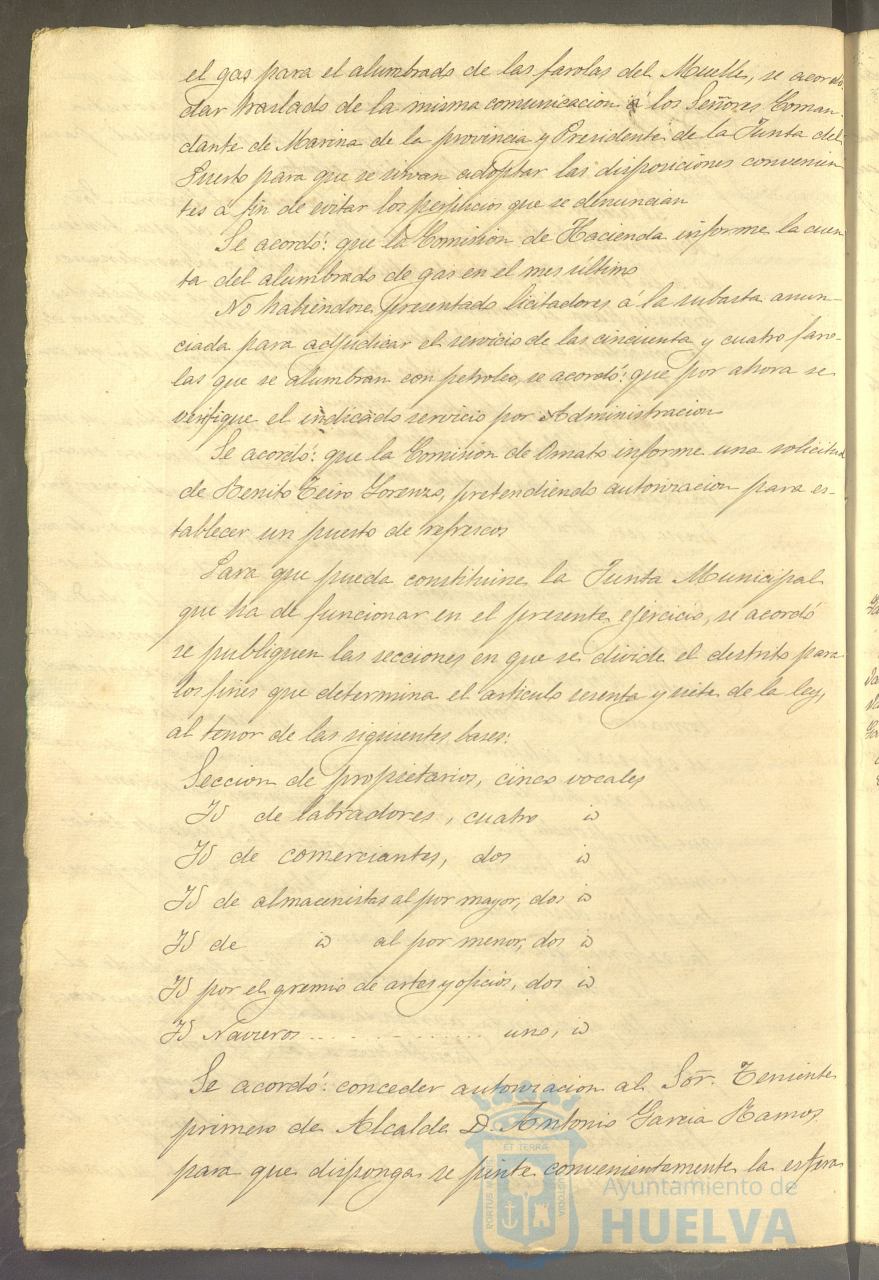 el gas para el alumbrado de las farolas del Muelle, se acordó
dar traslado de la misma comunicacion á los Señores Coman-
dante de Marina de la provincia y Presidente de la Junta del
Puerto para que se sirvan adoptar las disposiciones convenien
tes a fin de evitar los perjuicios que se denuncian
Se acordó: que la Comision de Hacienda informe la cuen
ta del alumbrado de gas en el mes último
No habiendose presentado licitadores á la subasta anun-
ciada para adjudicar el servicio de las cincuenta y cuatro faro-
las que se alumbran con petroleo, se acordó: que por ahora se
verifique el indicado servicio por Administracion
Se acordó: que la Comision de Ornato informe una solicitud
de Benito Teiro Lorenzo, pretendiendo autorizacion para es-
tablecer un puesto de refrescos
Para que pueda constituirse la Junta Municipal
que ha de funcionar en el presente ejercicio, se acordó
se publiquen las secciones en que se divide el distrito para
los fines que determina el articulo sesenta y siete de la ley,
al tenor de las siguientes bases:
Seccion de propietarios, cinco vocales
Id de labradores, cuatro id
Id de comerciantes, dos id
Id de almacenistas al por mayor, dos id
Id de id al por menor, dos id
Id por el gremio de artes y oficios, dos id
Id Navieros . . . . . . . . . . . . . . . . uno, id
Se acordó: conceder autorizacion al Sor. Teniente
primero de Alcalde D. Antonio Garcia Ramos
para que disponga se pinte convenientemente la esfera
ET TERRÆ
PORTUS
CUSTODIA
Ayuntamiento de
HUELVA